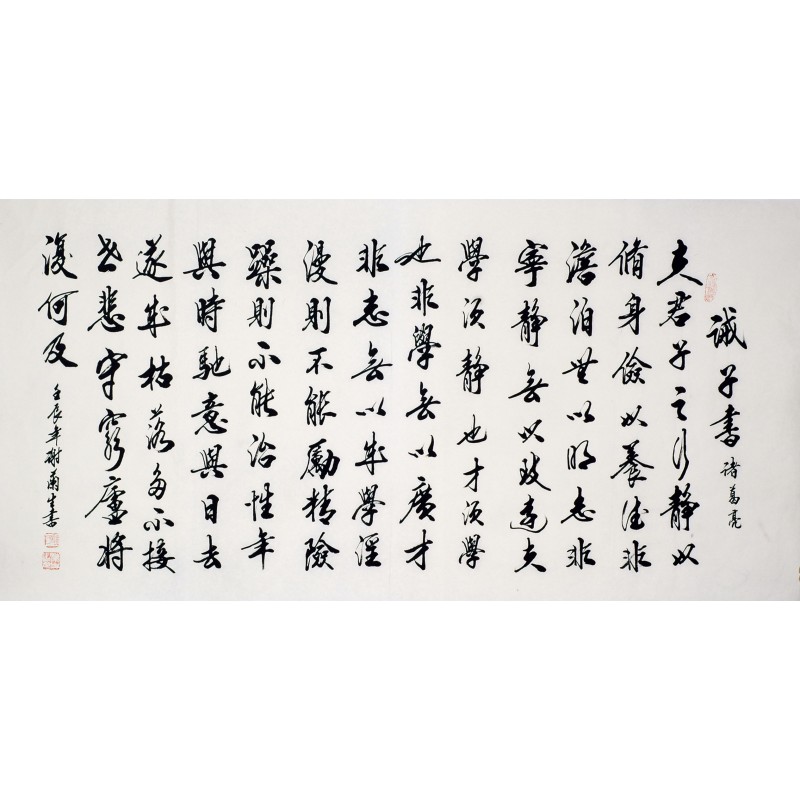 誡子書 諸葛亮
夫君子之行靜以
脩身儉以養德非
澹泊無以明志非
寧靜無以致遠夫
學須靜也才須學
也非學無以廣才
非志無以成學淫
漫則不能勵精險
躁則不能治性年
與時馳意與日去
遂成枯落多不接
世悲守窮廬將
復何及
壬辰年謝蘭生書